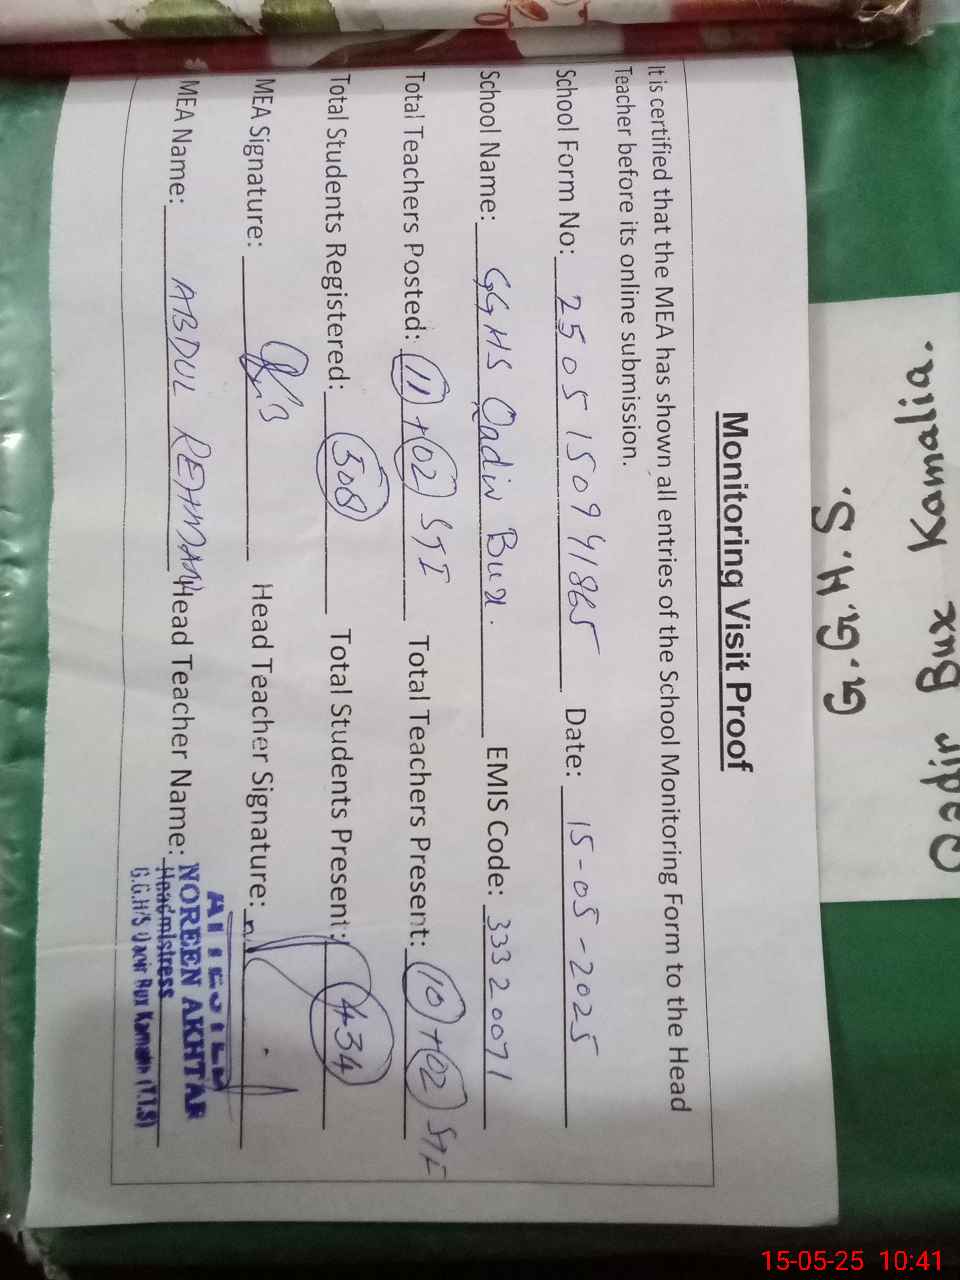 Monitoring Visit Proof
It is certified that the MEA has shown all entries of the School Monitoring Form to the Head
Teacher before its online submission.
School Form No: 2505150941865 Date: 15-05-2025
School Name: GGHS Qadir Bux. EMIS Code: 33320071
Total Teachers Posted: 11 + 02 STI Total Teachers Present: 10 + 02 STI
Total Students Registered: 508 Total Students Present: 434
MEA Signature: Head Teacher Signature:
MEA Name: ABDUL REHMAN Head Teacher Name:
ATTESTED
NOREEN AKHTAR
Headmistress
G.G.H/S Qadir Bux Kamalia (T.T.S)
G.G.H.S.
Qadir Bux Kamalia.
15-05-25 10:41